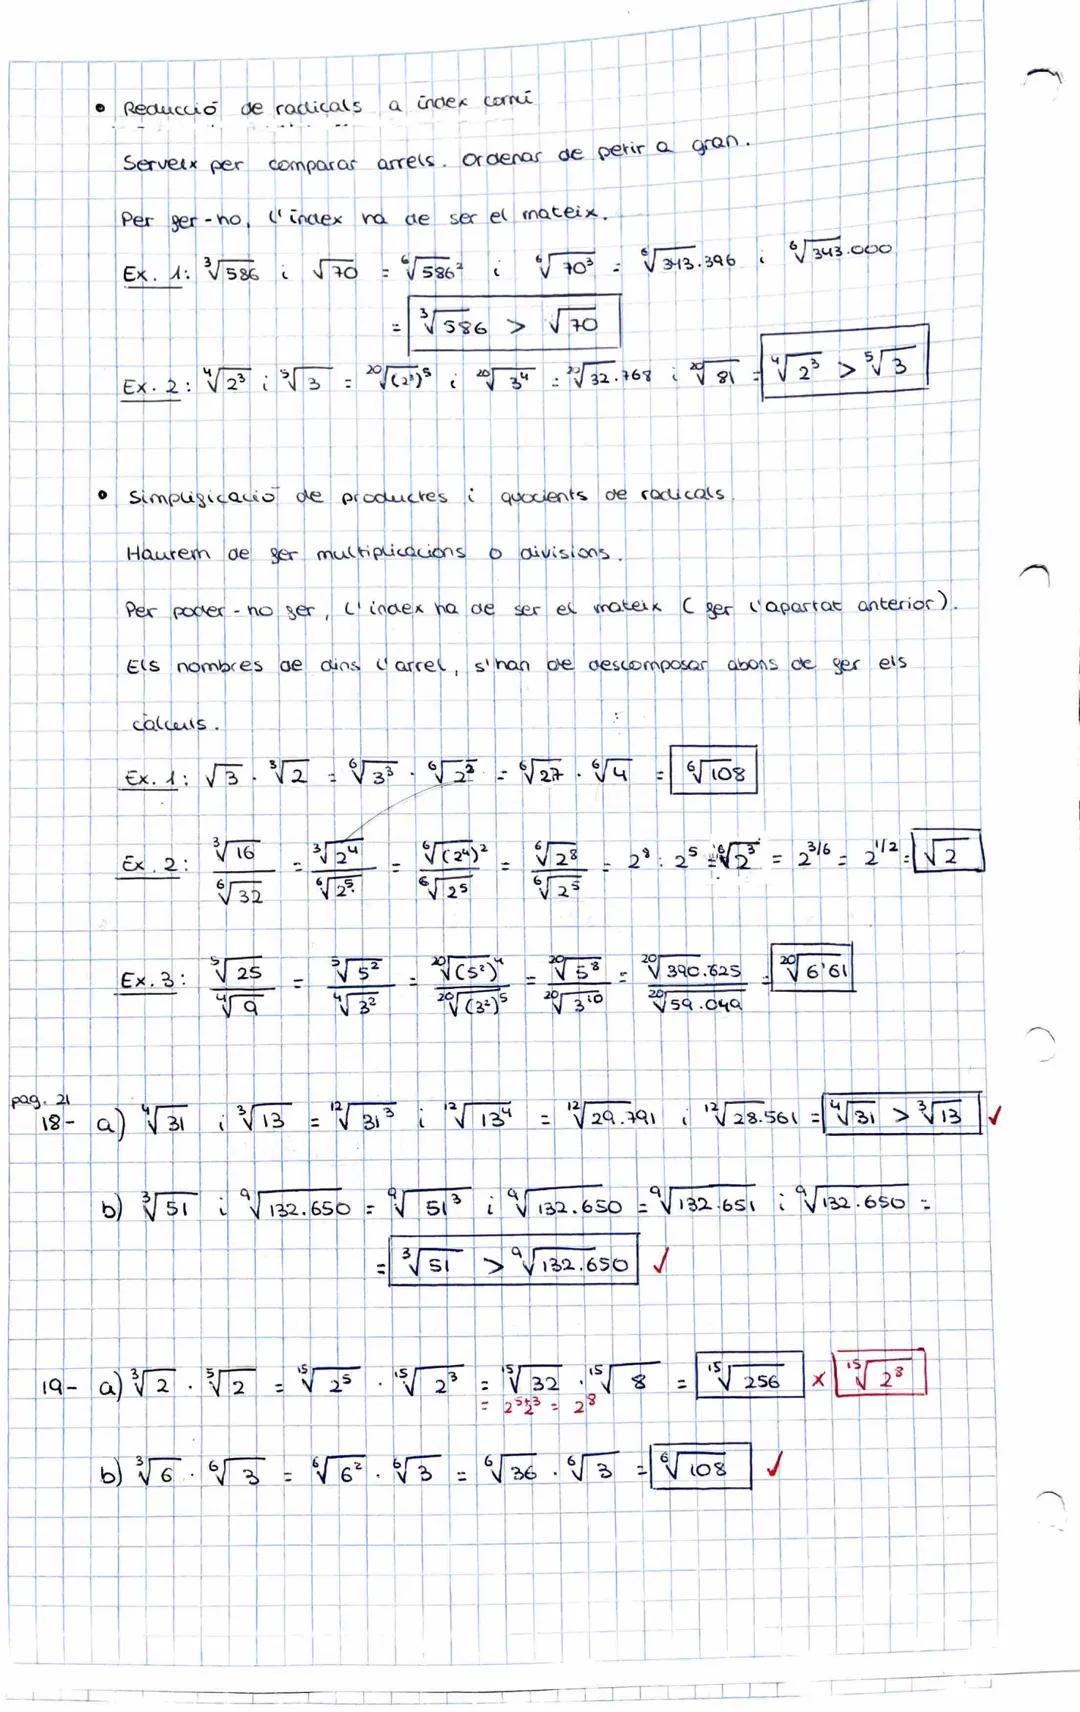 • Reducció de radicals a índex comú
Serveix per comparar arrels. Ordenar de petit a gran.
Per fer-ho, l'índex ha de ser el mateix.
Ex. 1: ³√586 i √70 = ⁶√586² i ⁶√70³ = ⁶√343.396 i ⁶√343.000
= ³√586 > √70
Ex. 2: ⁴√2³ i ⁵√3 = ²⁰√(2³)⁵ i ²⁰√3⁴ = ²⁰√32.768 i ²⁰√81 = ⁴√2³ > ⁵√3
• Simplificació de productes i quocients de radicals.
Haurem de fer multiplicacions o divisions.
Per poder-ho fer, l'índex ha de ser el mateix (fer l'apartat anterior).
Els nombres de dins l'arrel, s'han de descomposar abans de fer els
càlculs.
Ex. 1: √3 · ³√2 = ⁶√3³ · ⁶√2² = ⁶√27 · ⁶√4 = ⁶√108
Ex. 2: ³√16 / ⁶√32 = ³√2⁴ / ⁶√2⁵ = ⁶√(2⁴)² / ⁶√2⁵ = ⁶√2⁸ / ⁶√2⁵ = 2⁸ : 2⁵ = ⁶√2³ = 2^3/6 = 2^1/2 = √2
Ex. 3: ⁵√25 / ⁴√9 = ⁵√5² / ⁴√3² = ²⁰√(5²)⁴ / ²⁰√(3²)⁵ = ²⁰√5⁸ / ²⁰√3¹⁰ = ²⁰√390.625 / ²⁰√59.049 = ²⁰√6'61
pag. 21
18- a) ⁴√31 i ³√13 = ¹²√31³ i ¹²√13⁴ = ¹²√29.791 i ¹²√28.561 = ⁴√31 > ³√13 ✓
b) ³√51 i ⁹√132.650 = ⁹√51³ i ⁹√132.650 = ⁹√132.651 i ⁹√132.650 =
= ³√51 > ⁹√132.650 ✓
19- a) ³√2 · ⁵√2 = ¹⁵√2⁵ · ¹⁵√2³ = ¹⁵√32 · ¹⁵√8 = ¹⁵√256 × ¹⁵√2⁸
= 2⁵⁺³ = 2⁸
b) ³√6 · ⁶√3 = ⁶√6² · ⁶√3 = ⁶√36 · ⁶√3 = ⁶√108 ✓